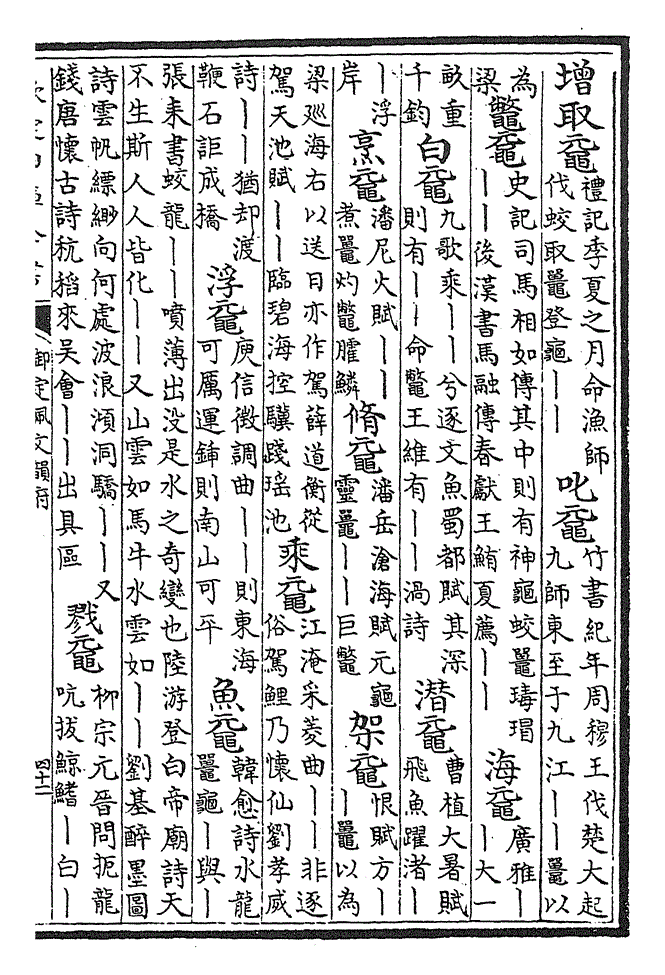 增取黿禮記季夏之月命漁師伐蛟取鼉登龜||叱黿竹書紀年周穆王伐楚大起九師東至于九江||鼉以
為梁鼈黿史記司馬相如傳其中則有神龜蛟鼉瑇瑁||後漢書馬融傳春獻王鮪夏薦||海黿廣雅||大一
畝重千鈞白黿九歌乘||兮逐文魚蜀都賦其深則有||命鼈王維有||渦詩潛黿曹植大暑賦飛魚躍渚|
|浮岸烹黿潘尼火賦||煮鼉灼鼈臛鱗脩黿潘岳滄海賦元龜靈鼉||巨鼈架黿恨賦方||鼉以為
梁廵海右以送目亦作駕薛道衡從駕天池賦||臨碧海控驥踐瑤池乘黿江淹采菱曲||非逐俗駕鯉乃懷仙劉孝威
詩||猶却渡鞭石詎成橋浮黿庾信徵調曲||則東海可厲運鍤則南山可平魚黿韓愈詩水龍鼉龜|與|
張耒書蛟龍||噴薄出没是水之奇變也陸游登白帝廟詩天不生斯人人皆化||又山雲如馬牛水雲如||劉基醉墨圖
詩雲帆縹緲向何處波浪澒洞驕||又錢唐懷古詩秔稻來吳會||出具區戮黿柳宗元晉問扼龍吭拔鯨鰭|白|
欽定四庫全書
御定佩文韻府
四十二